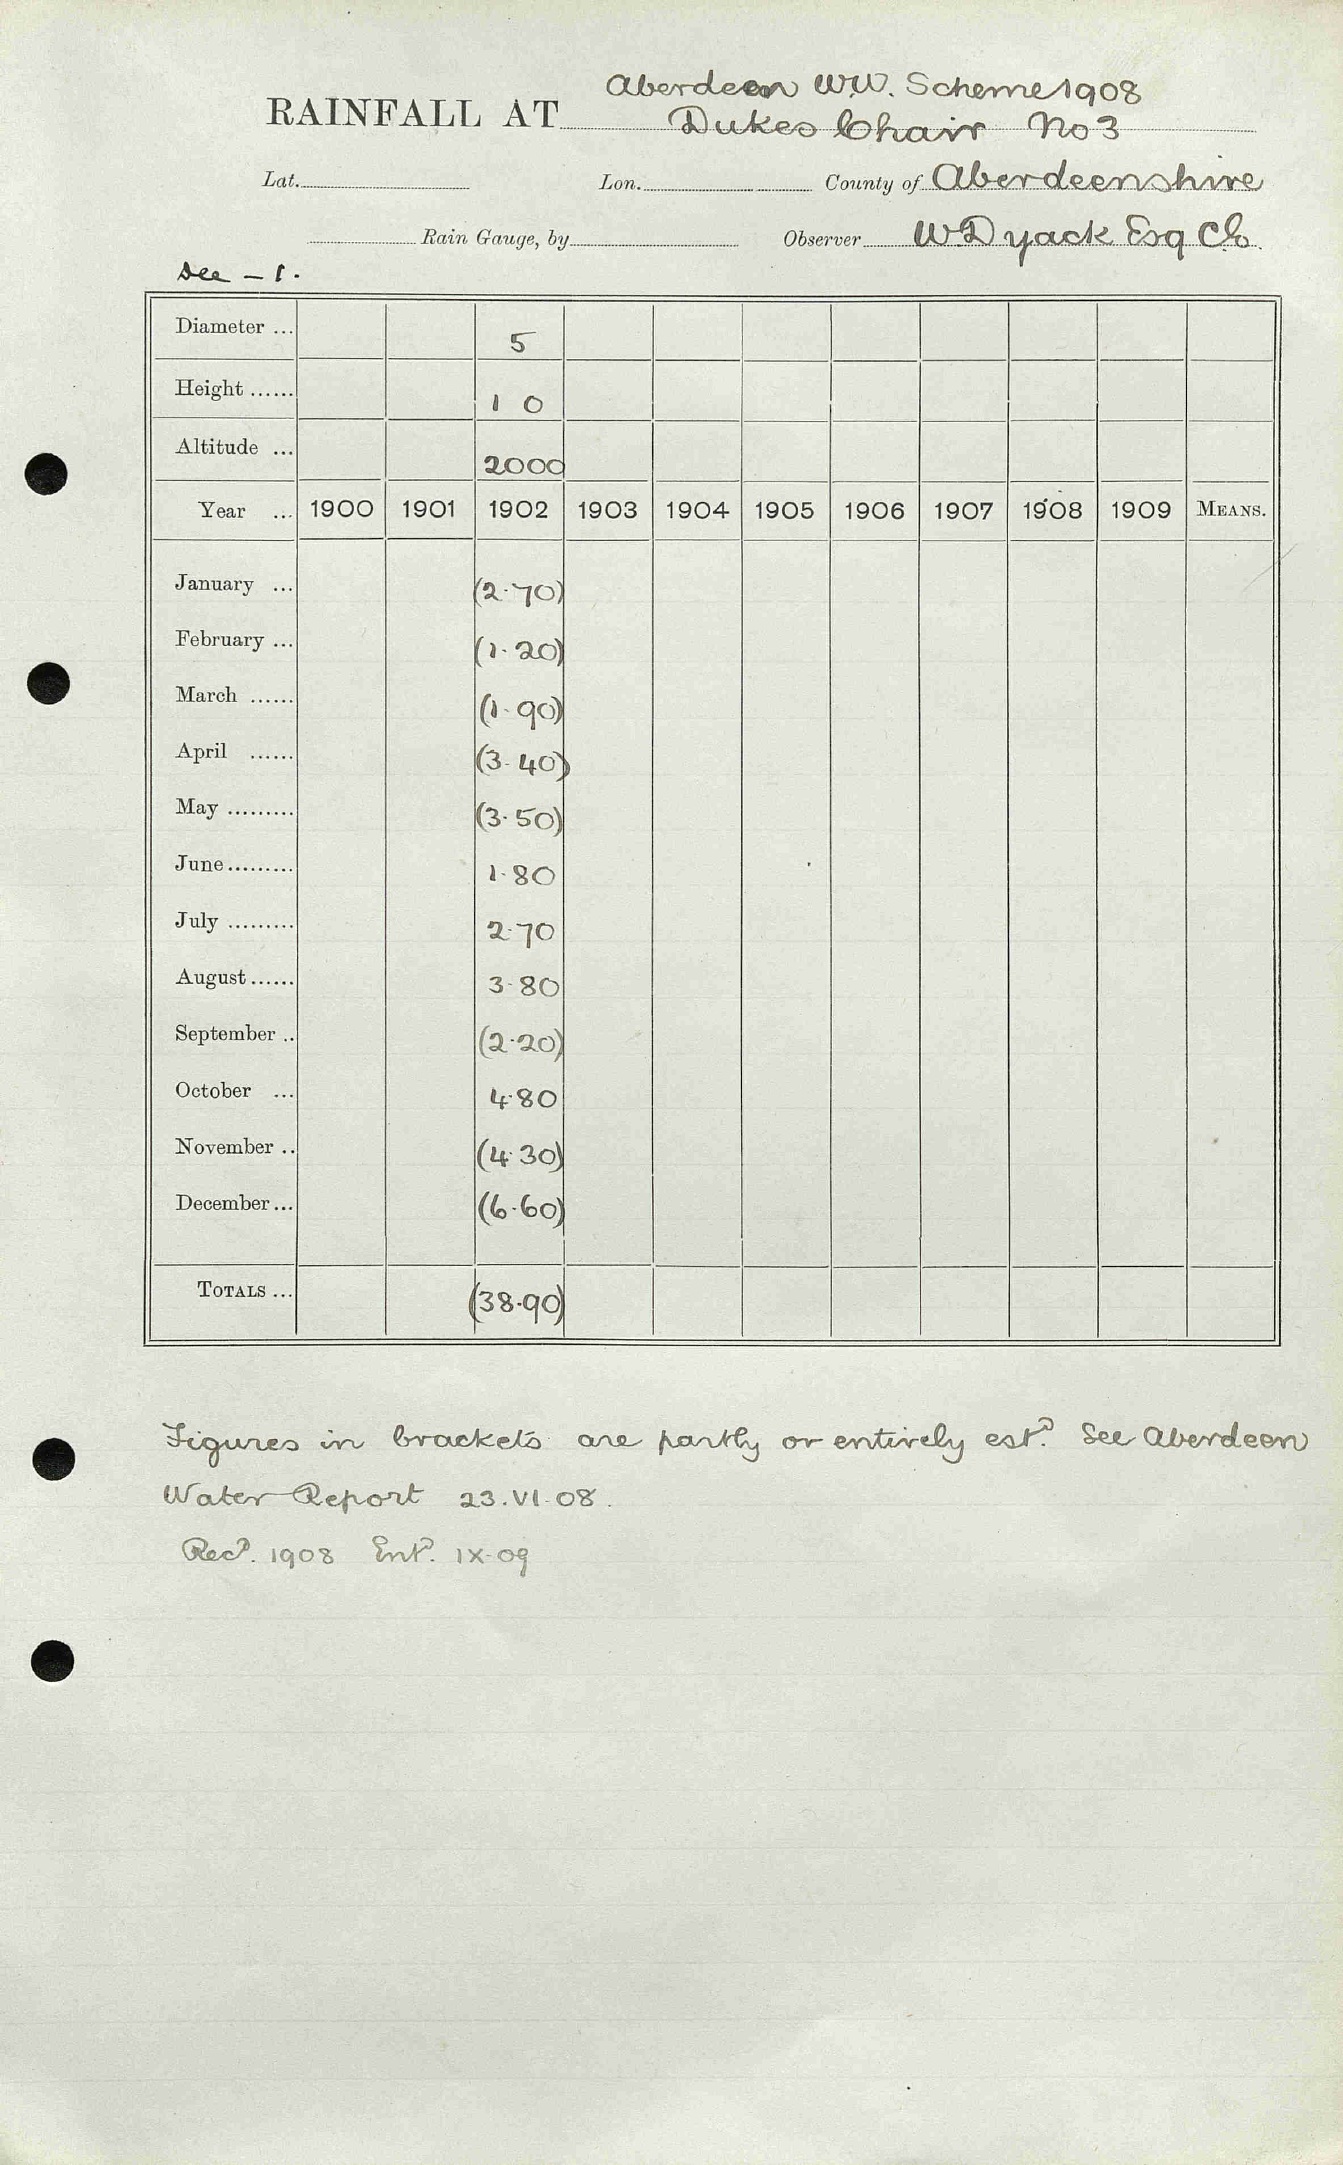 Aberdeen W.W. Scheme 1908
RAINFALL AT Dukes Chair No 3
Lat. Lon. County of Aberdeenshire
Rain Gauge, by Observer W Dyack Esq CE
Dee - 1.
Diameter ... 5
Height ...... 1 0
Altitude ... 2000
Year ... 1900 1901 1902 1903 1904 1905 1906 1907 1908 1909 MEANS.
January ... (2.70)
February ... (1.20)
March ...... (1.90)
April ...... (3.40)
May ......... (3.50)
June ......... 1.80
July ......... 2.70
August ...... 3.80
September .. (2.20)
October ... 4.80
November .. (4.30)
December ... (6.60)
TOTALS ... (38.90)
Figures in brackets are partly or entirely estd. See Aberdeen
Water Report 23.VI.08.
Recd. 1908 Entd. IX.09